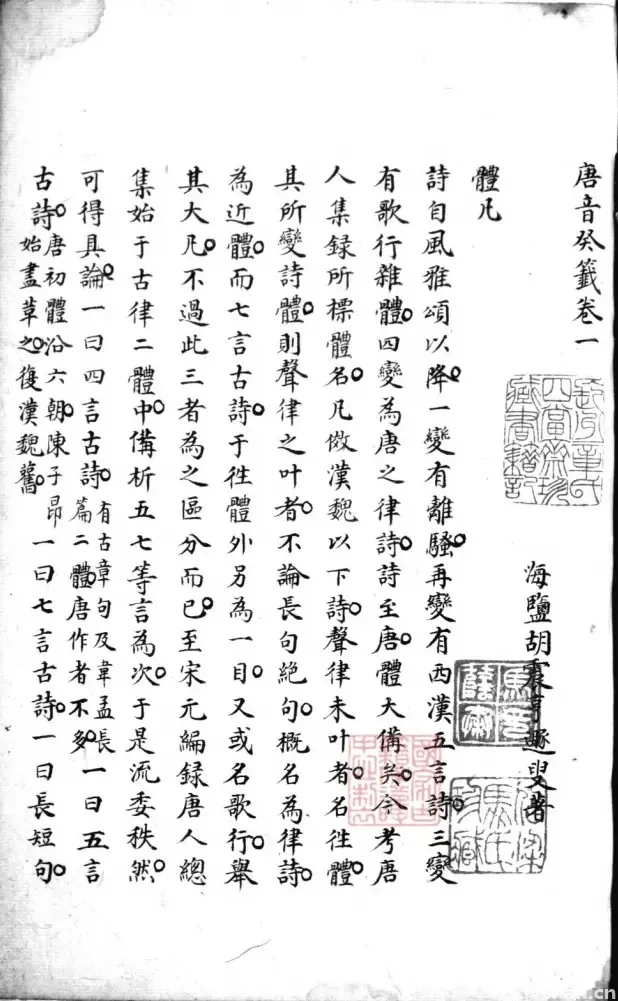 唐音癸籤卷一
海鹽胡震亨遯叟著
體凡
詩自風雅頌以降。一變有離騷。再變有西漢五言詩。三變
有歌行雜體。四變為唐之律詩。詩至唐。體大備矣。今考唐
人集録所標體名。凡倣漢魏以下詩。聲律未叶者。名徃體。
其所變詩體。則聲律之叶者。不論長句絕句。概名為律詩。
為近體。而七言古詩。于徃體外另為一目。又或名歌行。舉
其大凡。不過此三者為之區分而已。至宋元編録唐人總
集始于古律二體中。備析五七等言為次。于是流委秩然。
可得具論。一曰四言古詩。有古章句及韋孟長篇二體。唐作者不多。一曰五言
古詩。唐初體沿六朝。陳子昂始盡革之。復漢魏舊。一曰七言古詩。一曰長短句。